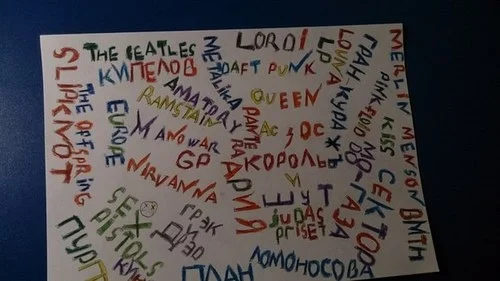 THE BEATLES
КИПЕЛОВ
SLIPKNOT
THE OFFSPRING
EUROPE
METALLIKA
LORDI
DAFT PUNK
LP
LOUNA
ГРАН КУРАЖЪ
PINK FLOYD
KISS
MERLIN MENSON
BMTH
AMATORY
RAMSTAIN
MANOWAR
GP
NIRVANNA
QUEEN
PANTERA
AC DC
КОРОЛЬ
И
ШУТ
АРИЯ
JUDAS
PRISET
СЕКТОР
ГАЗА
SEX
PISTOLS
ГРЭК
ПУРГ
КИН
ПЛАН
ЛОМОНОСОВА